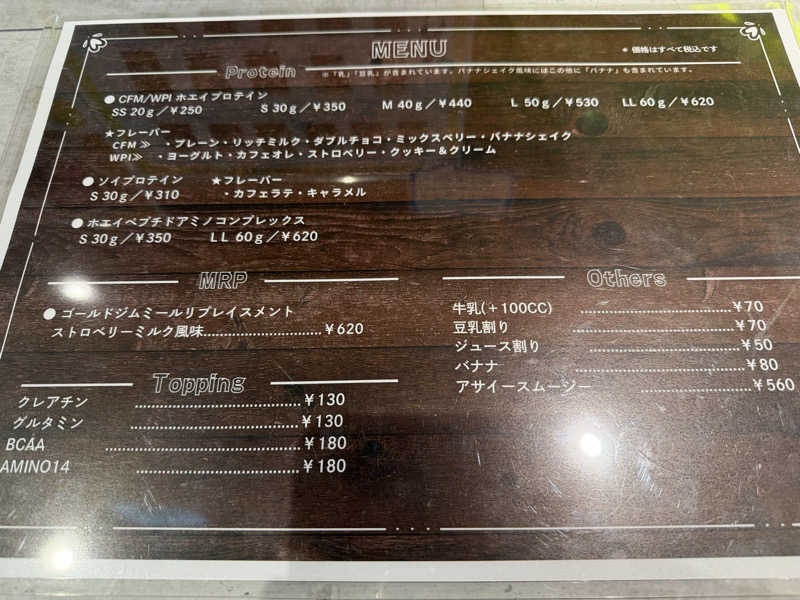 MENU
＊価格はすべて税込です
Protein
＊「乳」「豆乳」が含まれています。バナナシェイク風味にはこの他に「バナナ」も含まれています。
●CFM/WPI ホエイプロテイン
SS 20ｇ／¥250 S 30ｇ／¥350 M 40ｇ／¥440 L 50ｇ／¥530 LL 60ｇ／¥620
★フレーバー
CFM ≫ ・プレーン・リッチミルク・ダブルチョコ・ミックスベリー・バナナシェイク
WPI≫ ・ヨーグルト・カフェオレ・ストロベリー・クッキー＆クリーム
●ソイプロテイン ★フレーバー
S 30ｇ／¥310 ・カフェラテ・キャラメル
●ホエイペプチドアミノコンプレックス
S 30ｇ／¥350 LL 60ｇ／¥620
MRP
●ゴールドジムミールリプレイスメント
ストロベリーミルク風味……………………¥620
Topping
クレアチン ……………………………¥130
グルタミン ……………………………¥130
BCAA ……………………………¥180
AMINO14 ……………………………¥180
Others
牛乳(＋100CC) ……………………………¥70
豆乳割り ……………………………¥70
ジュース割り ……………………………¥50
バナナ ……………………………¥80
アサイースムージー ……………………………¥560